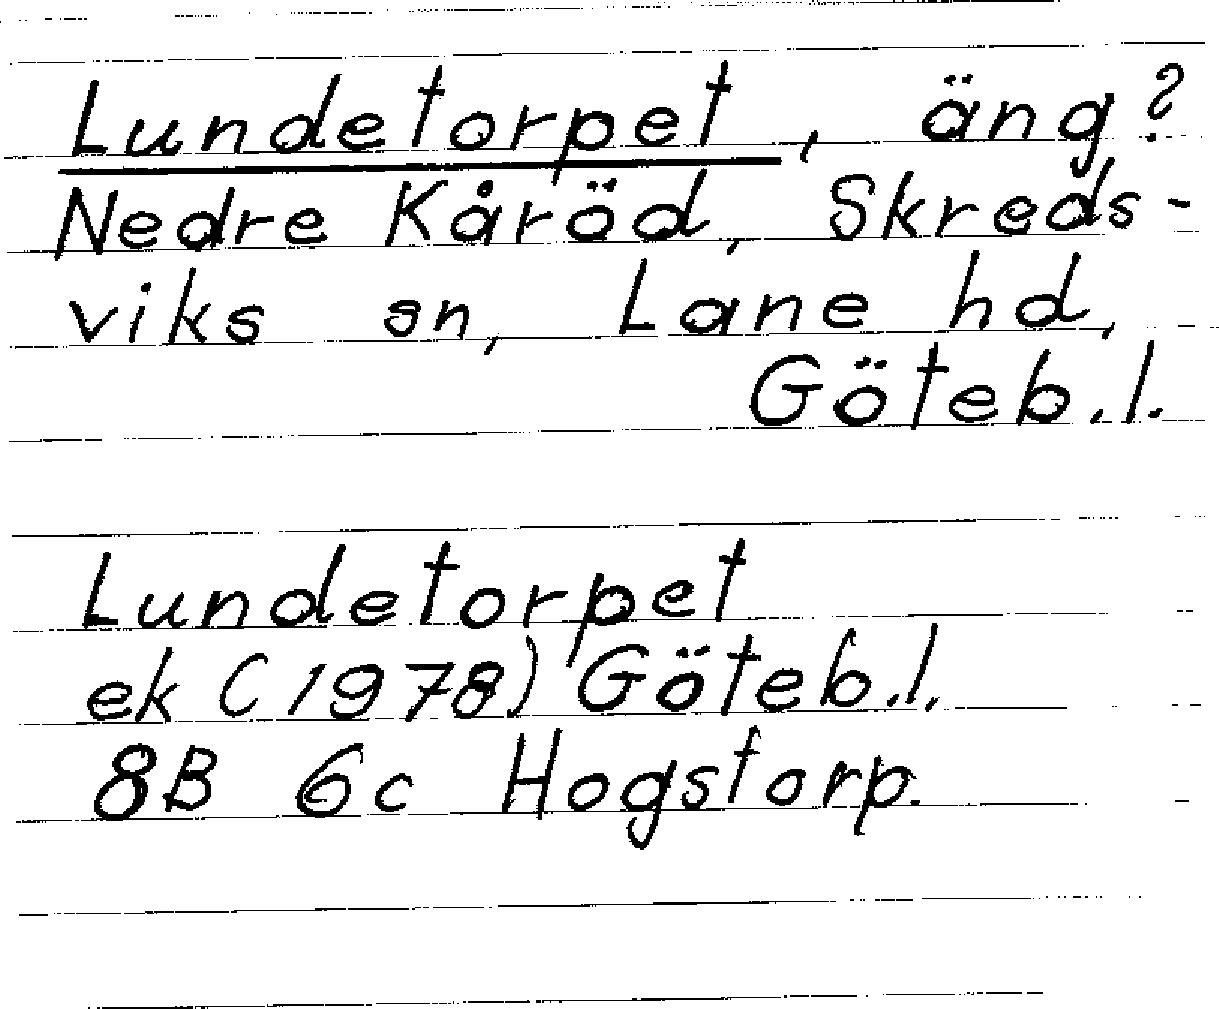 Lundetorpet, äng?
Nedre Kåröd, Skreds-
viks sn, Lane hd,
Göteb.l.
Lundetorpet
ek (1978) Göteb.l.
8B 6c Hogstorp.